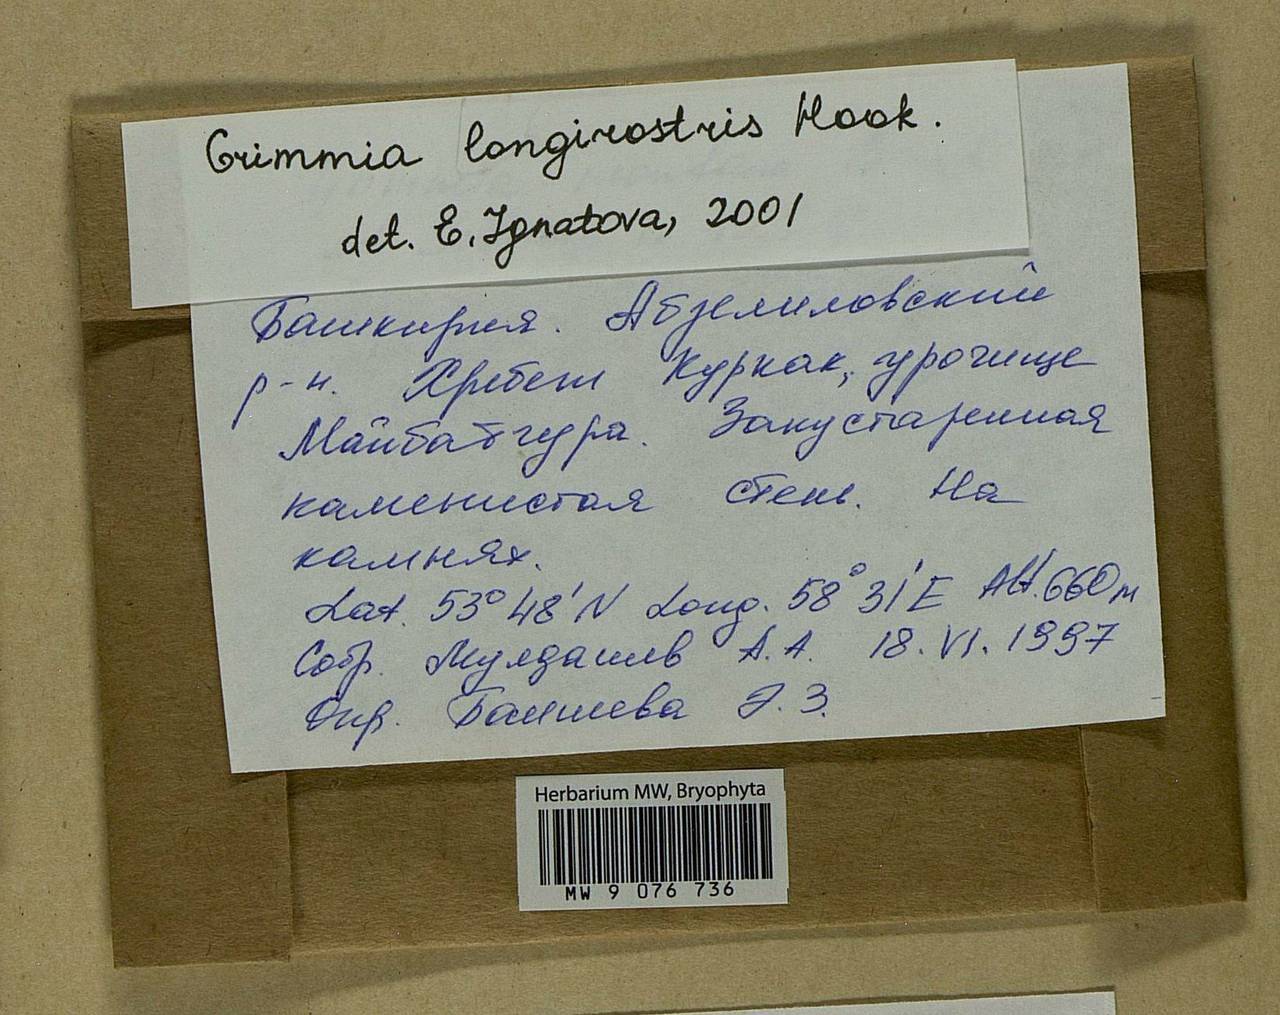 Grimmia longirostris Hook.
det. E. Ignatova, 2001
Башкирия. Абзелиловский
р-н. Хребет Куркак, урочище
Майбатгура. Закустаренная
каменистая степь. На
камнях.
Lat. 53°48'N Long. 58°31'E Alt. 660 м
Собр. Мулдашев А.А. 18.VI.1997
Опр. Баишева Э.З.
Herbarium MW, Bryophyta
MW 9 076 736